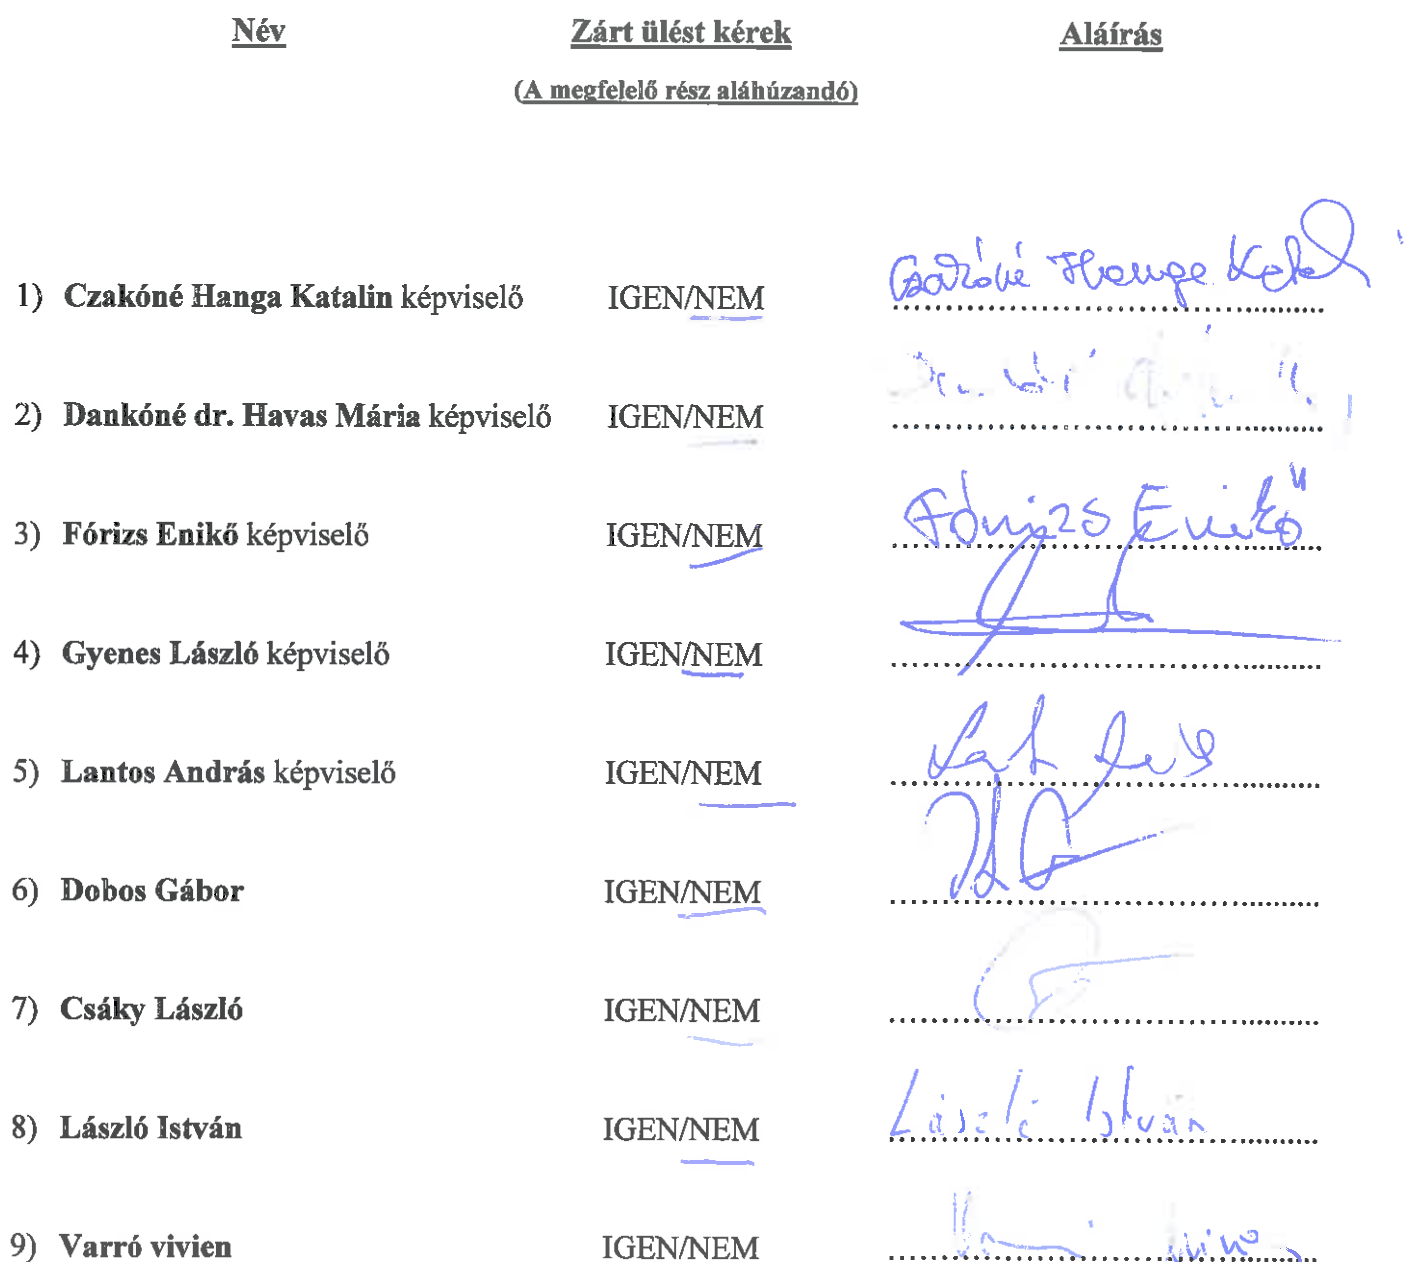 Név Zárt ülést kérek Aláírás
(A megfelelő rész aláhúzandó)
1) Czakóné Hanga Katalin képviselő IGEN/NEM Czakóné Hanga Katal
2) Dankóné dr. Havas Mária képviselő IGEN/NEM
3) Fórizs Enikő képviselő IGEN/NEM Fórizs Enikő
4) Gyenes László képviselő IGEN/NEM
5) Lantos András képviselő IGEN/NEM
6) Dobos Gábor IGEN/NEM
7) Csáky László IGEN/NEM
8) László István IGEN/NEM László István
9) Varró vivien IGEN/NEM